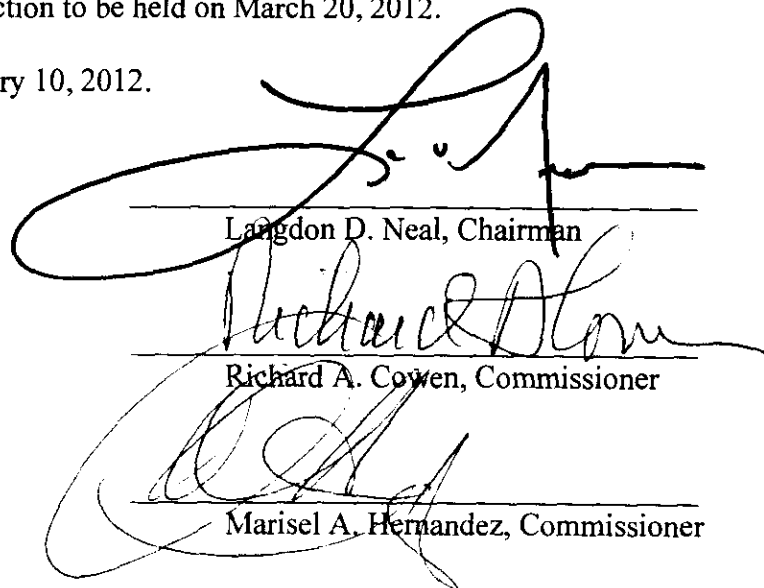 ction to be held on March 20, 2012.
ry 10, 2012.
Langdon D. Neal, Chairman
Richard A. Cowen, Commissioner
Marisel A. Hernandez, Commissioner